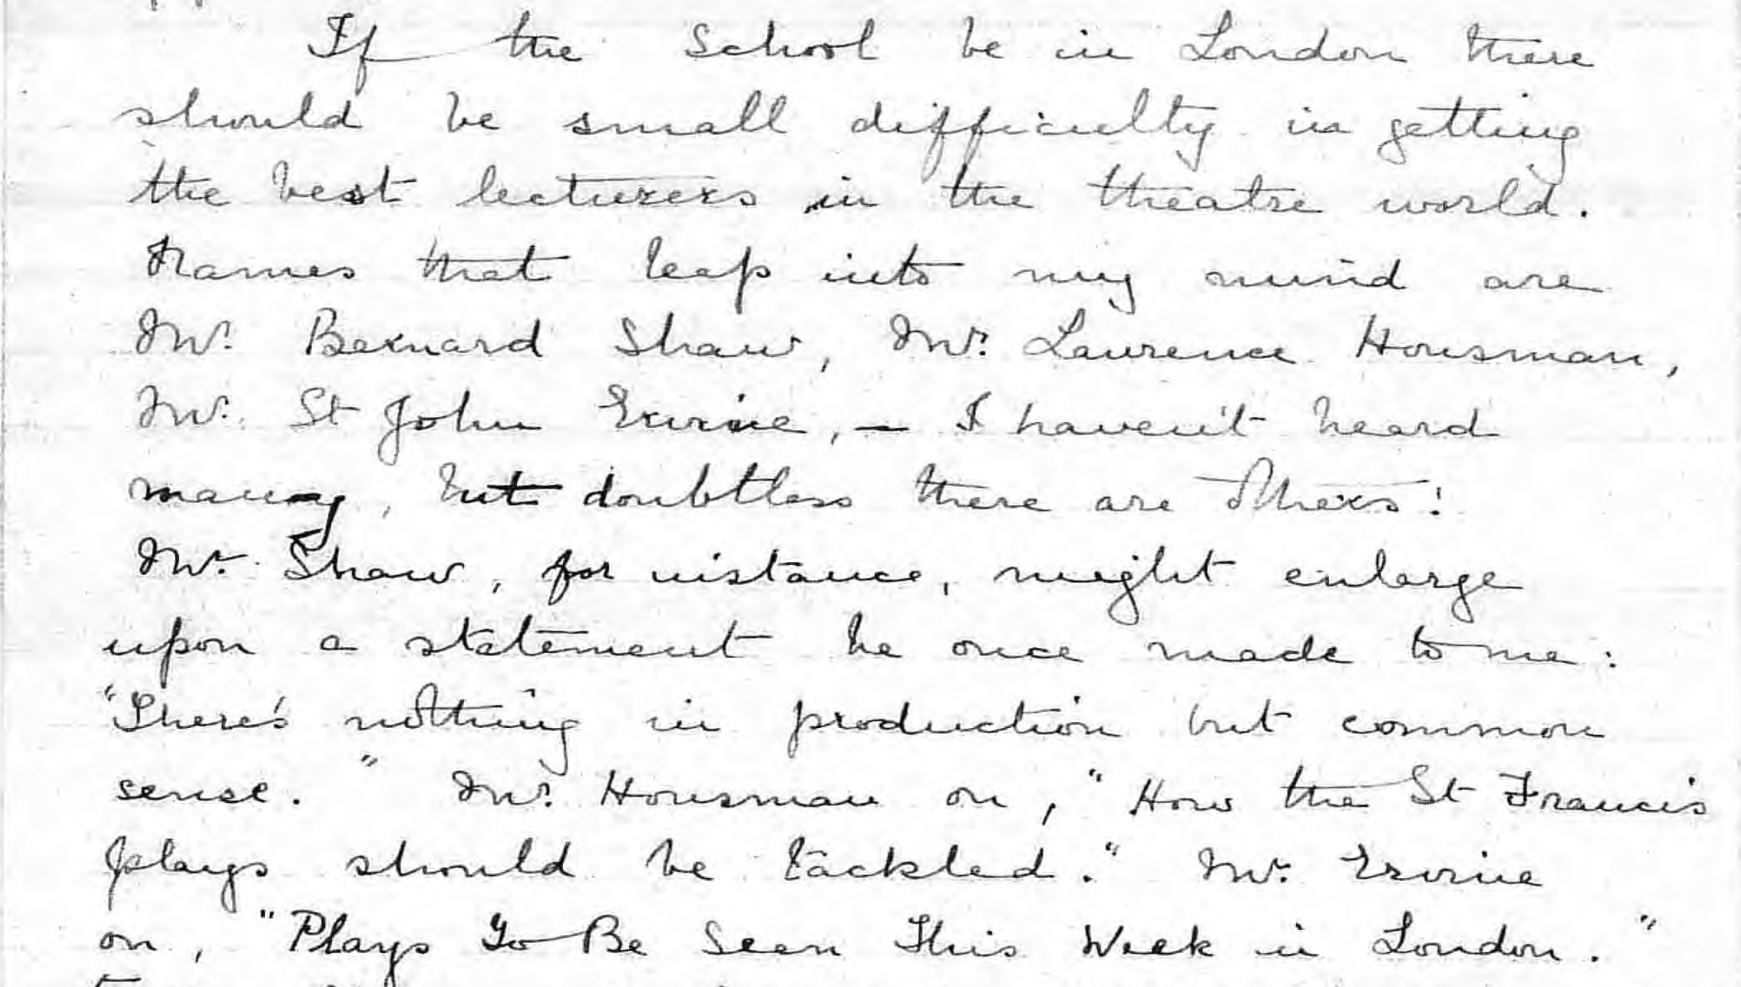 If the School be in London there
should be small difficulty in getting
the best lecturers in the theatre world.
Names that leap into my mind are
Mr. Bernard Shaw, Mr. Laurence Housman,
Mr. St John Ervine, — I haven't heard
many, but doubtless there are others!
Mr. Shaw, for instance, might enlarge
upon a statement he once made to me:
"There's nothing in production but common
sense." Mr. Housman on, "How the St Francis
plays should be tackled." Mr. Ervine
on, "Plays To Be Seen This Week in London."